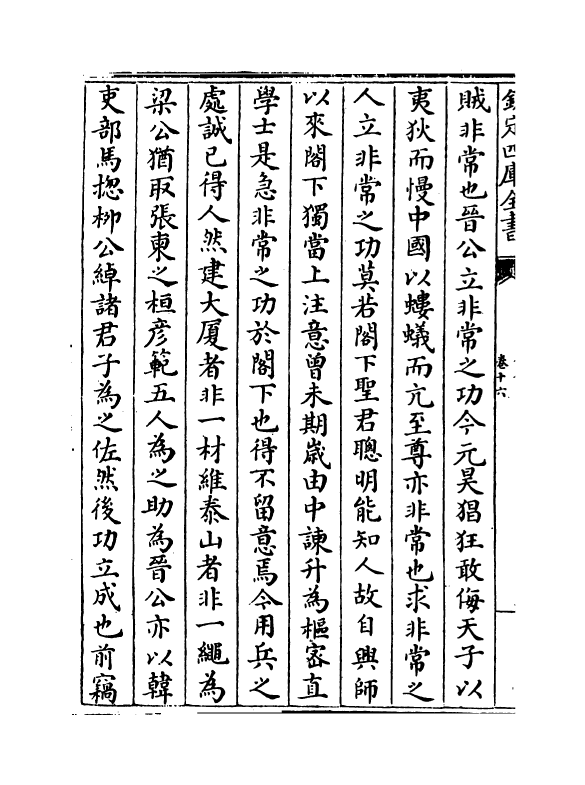 欽定四庫全書
卷十六
賊非常也晉公立非常之功今元昊猖狂敢侮天子以
夷狄而慢中國以螻蟻而亢至尊亦非常也求非常之
人立非常之功莫若閣下聖君聰明能知人故自興師
以來閣下獨當上注意曾未期歲由中諫升為樞密直
學士是急非常之功於閣下也得不留意焉今用兵之
處誠已得人然建大厦者非一材維泰山者非一繩為
梁公猶取張柬之桓彦範五人為之助為晉公亦以韓
吏部馬揔柳公綽諸君子為之佐然後功立成也前竊